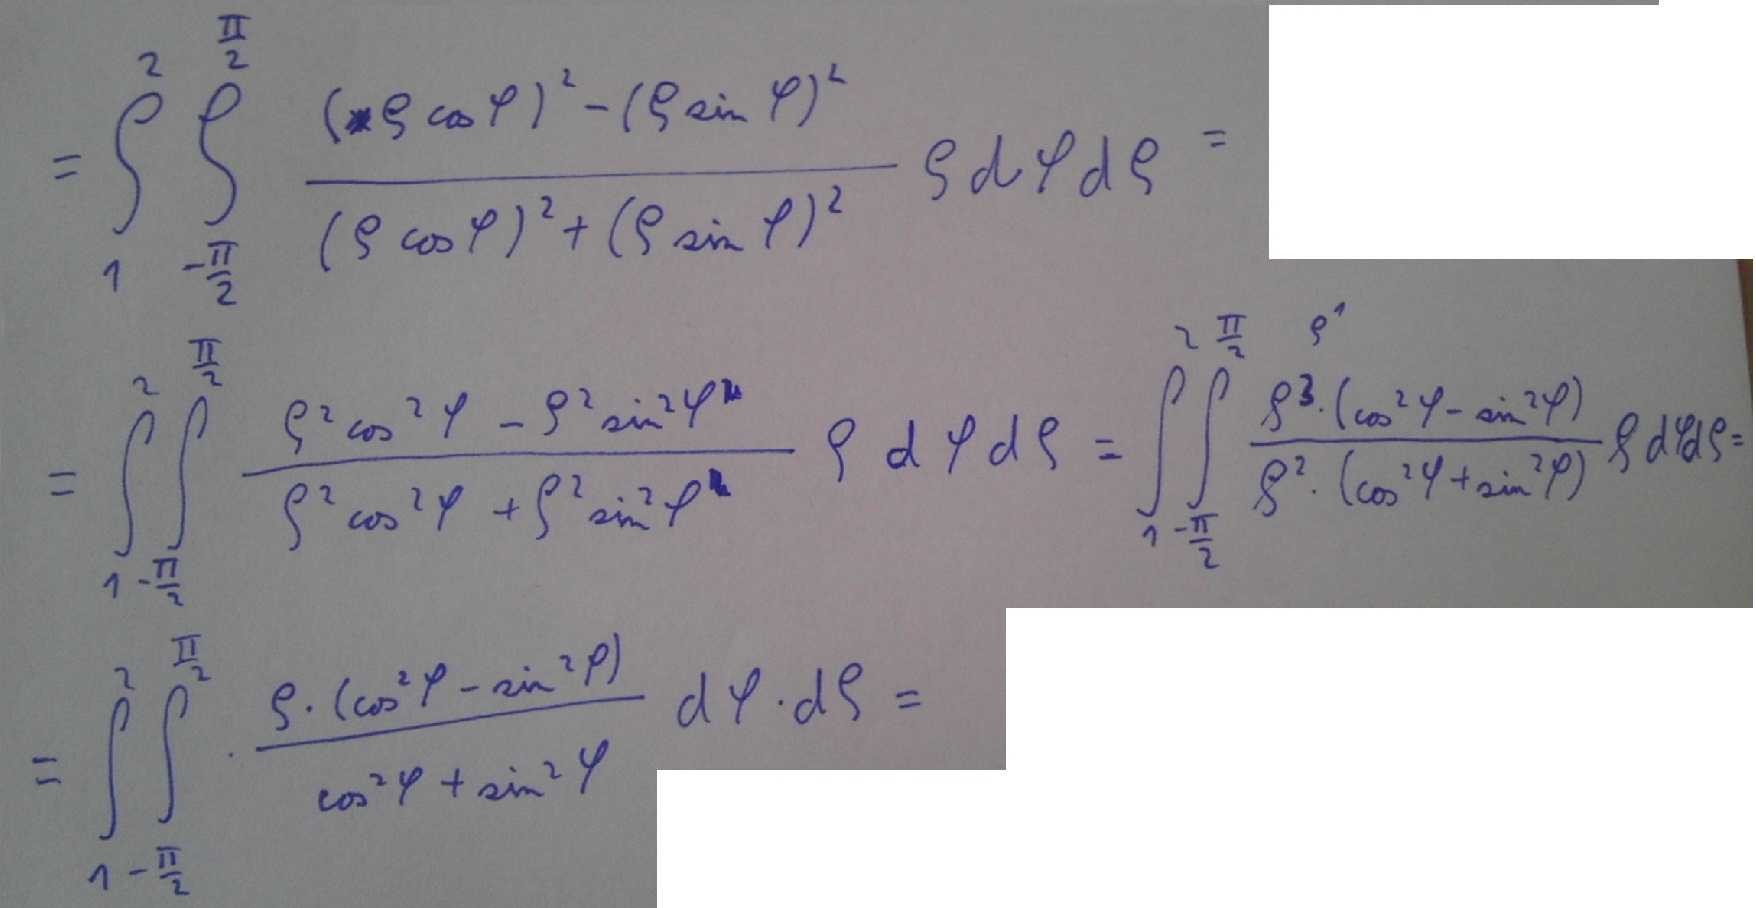 = ∫₁² ∫_{-π/2}^{π/2} ((ρ cos φ)² - (ρ sin φ)²) / ((ρ cos φ)² + (ρ sin φ)²) ρ dφ dρ =
= ∫₁² ∫_{-π/2}^{π/2} (ρ² cos² φ - ρ² sin² φ) / (ρ² cos² φ + ρ² sin² φ) ρ dφ dρ = ∫₁² ∫_{-π/2}^{π/2} ρ¹ (ρ³ · (cos² φ - sin² φ)) / (ρ² · (cos² φ + sin² φ)) ρ dφ dρ =
= ∫₁² ∫_{-π/2}^{π/2} · (ρ · (cos² φ - sin² φ)) / (cos² φ + sin² φ) dφ · dρ =